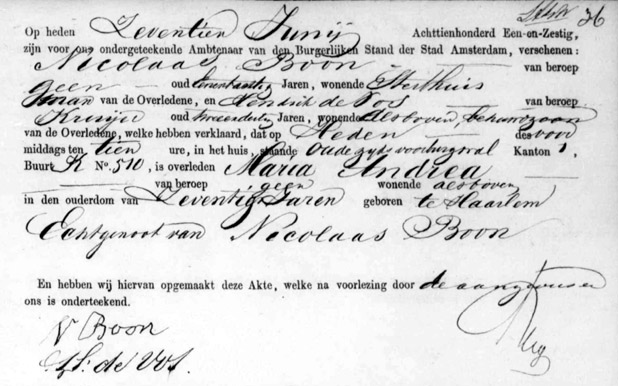 36
Op heden Zeventien Junij Achttienhonderd Een-en-Zestig,
zijn voor ons ondergeteekende Ambtenaar van den Burgerlijken Stand der Stad Amsterdam, verschenen:
Nicolaas Boon van beroep
geen oud Jaren, wonende Sterfhuis
man van de Overledene, en Hendrik de Vos van beroep
Kruijer oud Jaren, wonende alsboven, behuwdzoon
van de Overledene, welke hebben verklaard, dat op Heden des voor
middags ten tien ure, in het huis, staande Oude zyds voorburgwal Kanton 1,
Buurt K No. 510, is overleden Maria Andrea
van beroep geen wonende alsboven
in den ouderdom van Zeventig Jaren geboren te Haarlem
Echtgenoot van Nicolaas Boon
En hebben wij hiervan opgemaakt deze Akte, welke na voorlezing door de aangevers en
ons is onderteekend.
N Boon
H: de Vos.